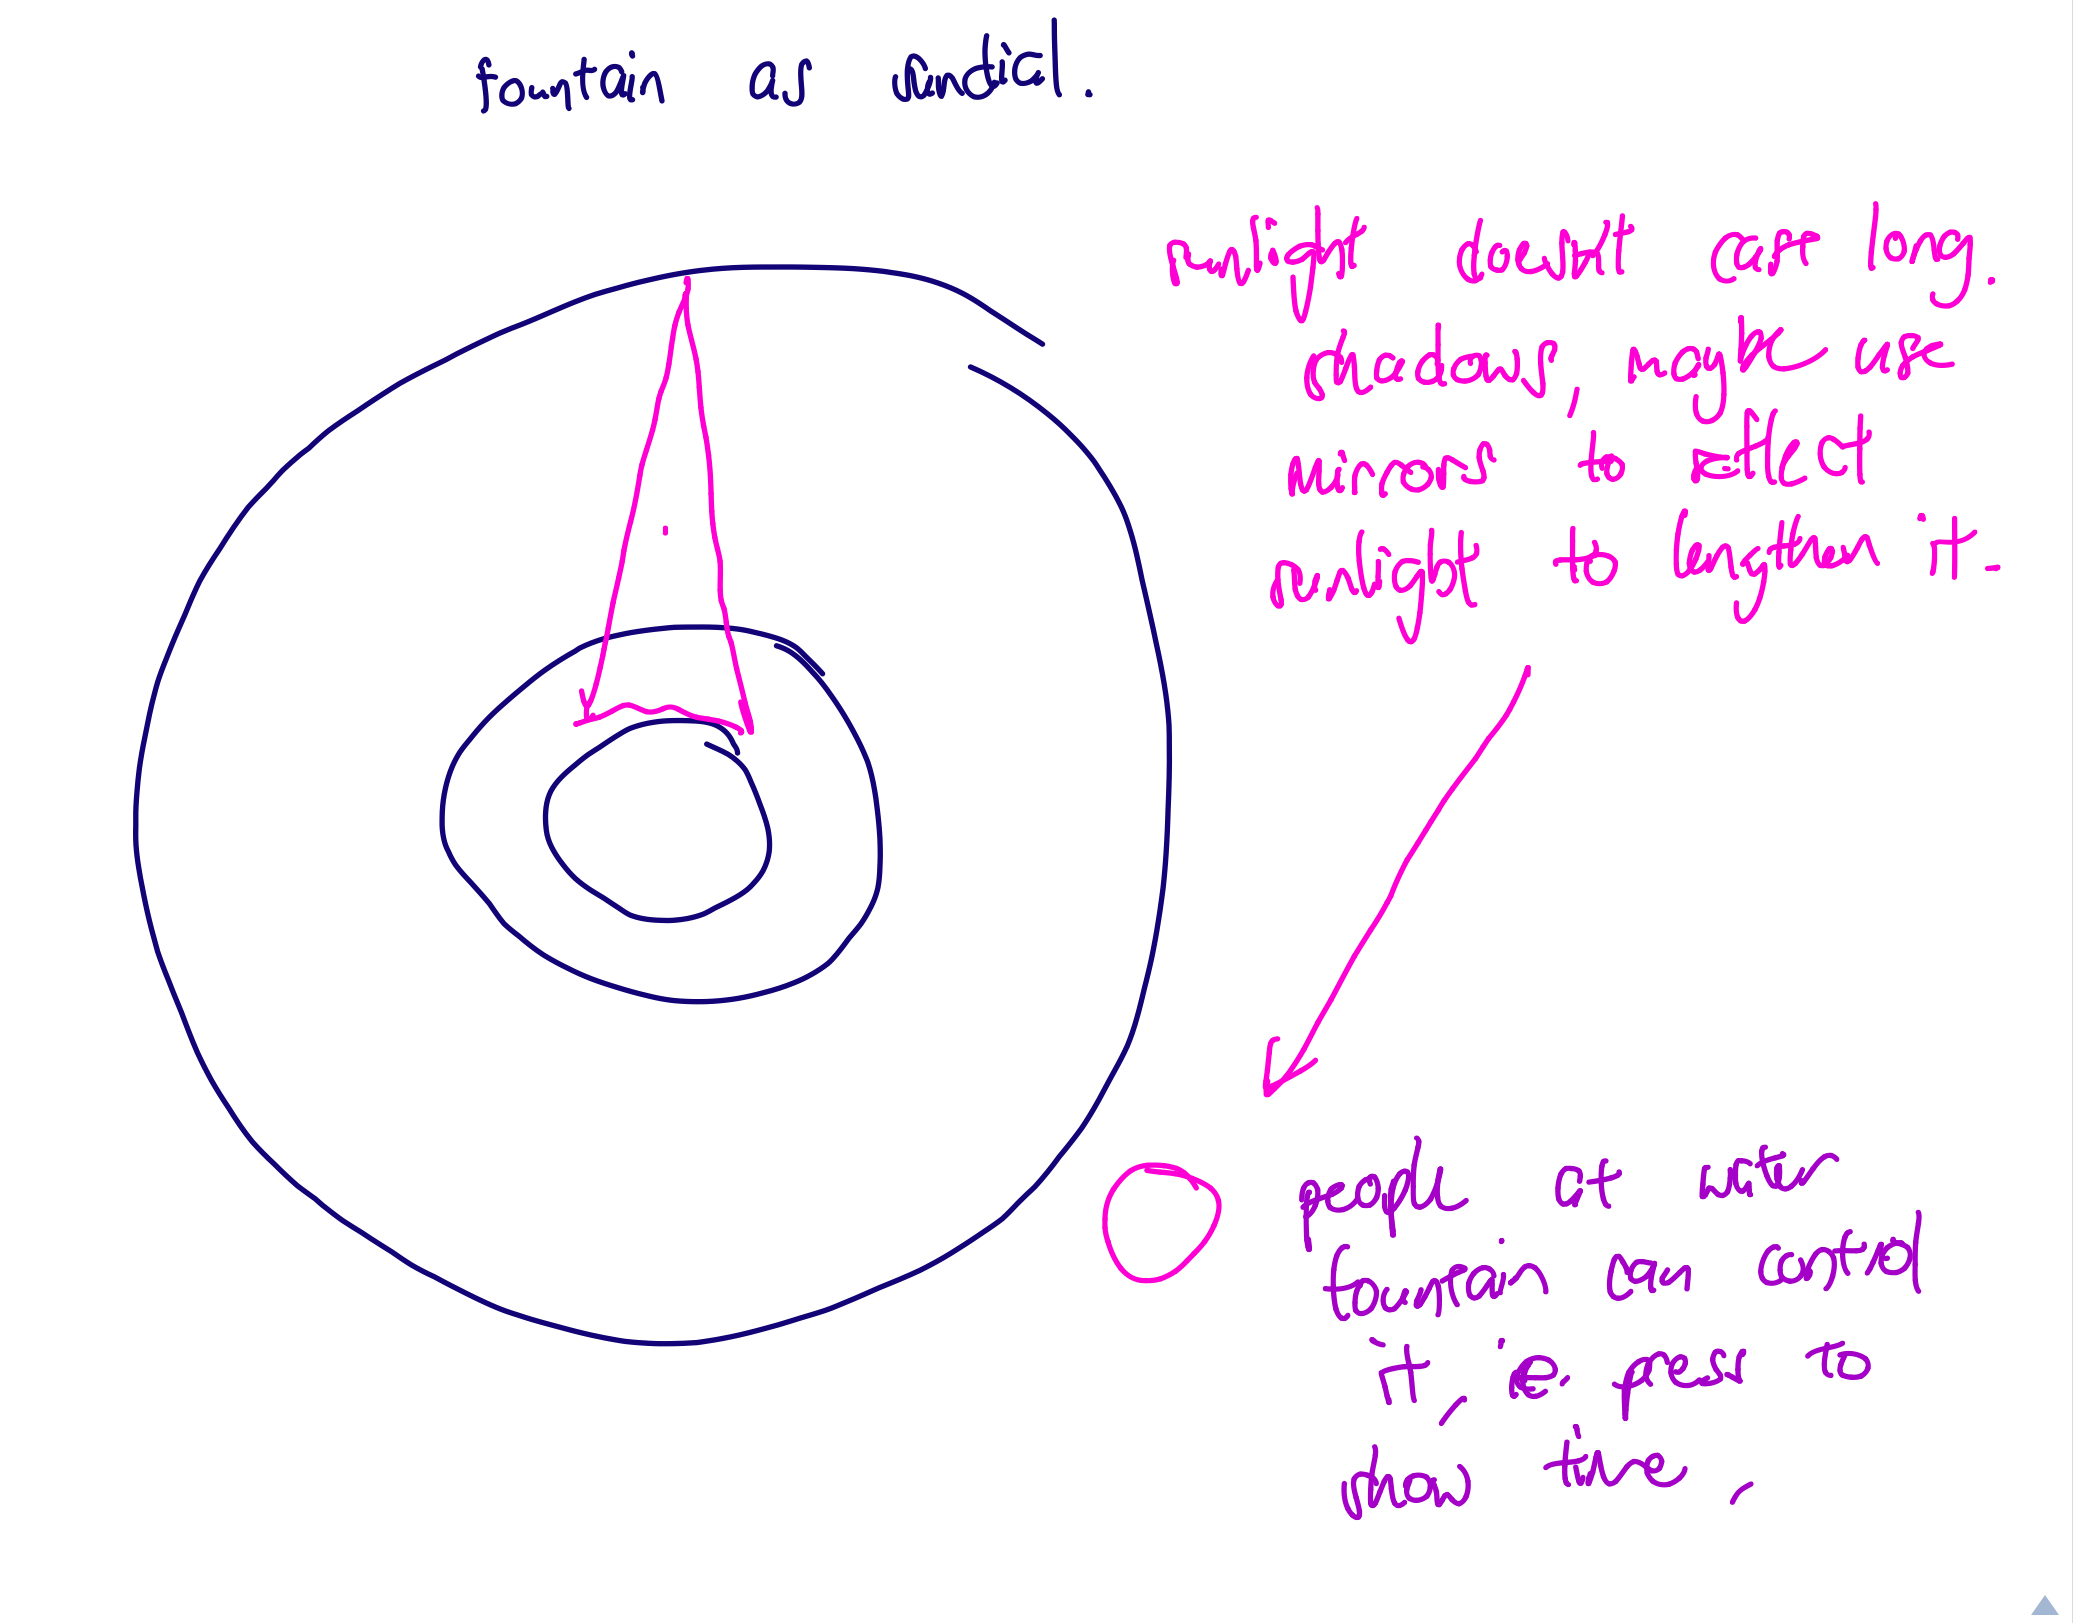 fountain as sundial.
sunlight doesn't cast long.
shadows, maybe use
mirrors to reflect
sunlight to lengthen it.
people at water
fountain can control
it, ie. press to
show time,